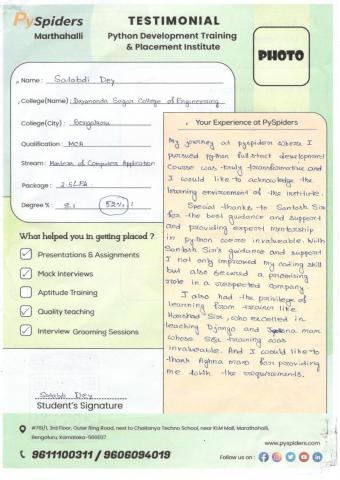 PySpiders
Marthahalli
TESTIMONIAL
Python Development Training
& Placement Institute
PHOTO
Name : Satabdi Dey
College(Name) : Dayananda Sagar College of Engineering
College(City) : Bengaluru
Qualification : MCA
Stream : Masters of Computer Application
Package : 2.5LPA
Degree % : 8.1 52%
What helped you in getting placed ?
Presentations & Assignments
Mock Interviews
Aptitude Training
Quality teaching
Interview Grooming Sessions
Satabdi Dey
Student's Signature
Your Experience at PySpiders
My journey at pyspiders where I
pursued python full stack development
course was truly transformative and
I would like to acknowledge the
learning environment of the institute.
Special thanks to Santosh Sir
for the best guidance and support
and providing expert mentorship
in python were invaluable. With
Santosh Sir's guidance and support
I not only improved my coding skill
but also secured a promising
role in a respected company.
I also had the privilege of
learning from trainer like
Sir, who excelled in
teaching Django and mam
whose SQL training was
invaluable. And I would like to
thank mam for providing
me with the requirements.
#761/1, 3rd Floor, Outer Ring Road, next to Chaitanya Techno School, near KLM Mall, Marathahalli,
Bengaluru, Karnataka-560037
9611100311 / 9606094019
www.pyspiders.com
Follow us on :